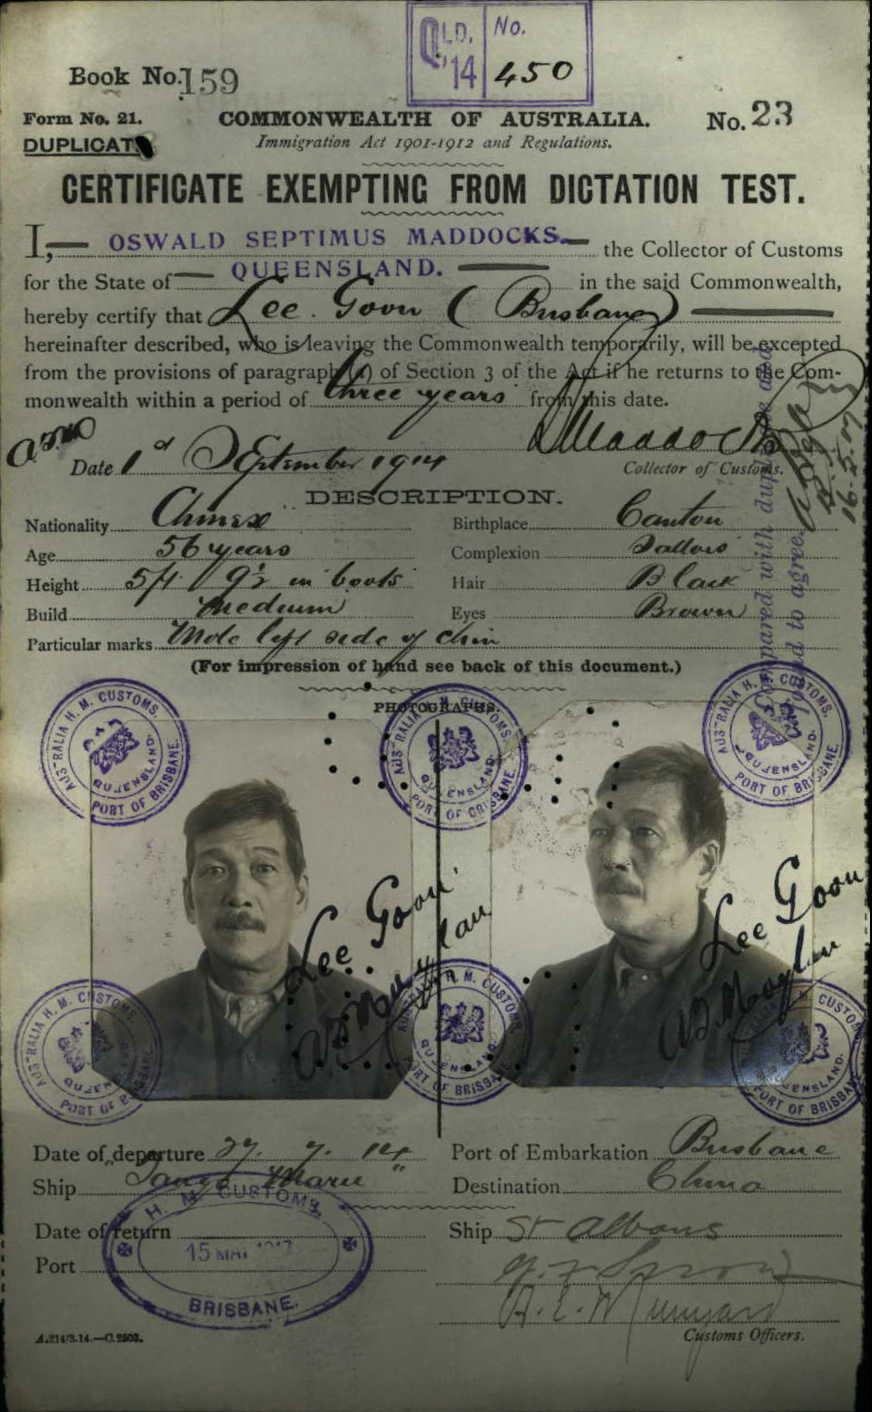 QLD. No.
'14 450
Book No. 159
Form No. 21. COMMONWEALTH OF AUSTRALIA. No. 23
DUPLICATE Immigration Act 1901-1912 and Regulations.
CERTIFICATE EXEMPTING FROM DICTATION TEST.
I, OSWALD SEPTIMUS MADDOCKS. the Collector of Customs
for the State of QUEENSLAND. in the said Commonwealth,
hereby certify that Lee Goon (Brisbane)
hereinafter described, who is leaving the Commonwealth temporarily, will be excepted
from the provisions of paragraph (a) of Section 3 of the Act if he returns to the Com-
monwealth within a period of three years from this date.
Maddocks
Date 1st September 1914 Collector of Customs.
DESCRIPTION.
Nationality Chinese Birthplace Canton
Age 56 years Complexion Sallow
Height 5ft 9½ in boots Hair Black
Build Medium Eyes Brown
Particular marks Mole left side of chin
Compared with duplicate and
found to agree.
16.5.17
(For impression of hand see back of this document.)
PHOTOGRAPHS.
AUSTRALIA H. M. CUSTOMS. QUEENSLAND. PORT OF BRISBANE
AUSTRALIA H. M. CUSTOMS. QUEENSLAND. PORT OF BRISBANE
AUSTRALIA H. M. CUSTOMS. QUEENSLAND. PORT OF BRISBANE
Lee Goon
Lee Goon
AUSTRALIA H. M. CUSTOMS. QUEENSLAND. PORT OF BRISBANE
AUSTRALIA H. M. CUSTOMS. QUEENSLAND. PORT OF BRISBANE
AUSTRALIA H. M. CUSTOMS. QUEENSLAND. PORT OF BRISBANE
Date of departure 27. 9. 14 Port of Embarkation Brisbane
Ship "Tango Maru" Destination China
Date of return Ship St Albans
Port
H. M. CUSTOMS.
15 MAY 1917
BRISBANE.
Customs Officers.
A.214/3.14.—C.2503.